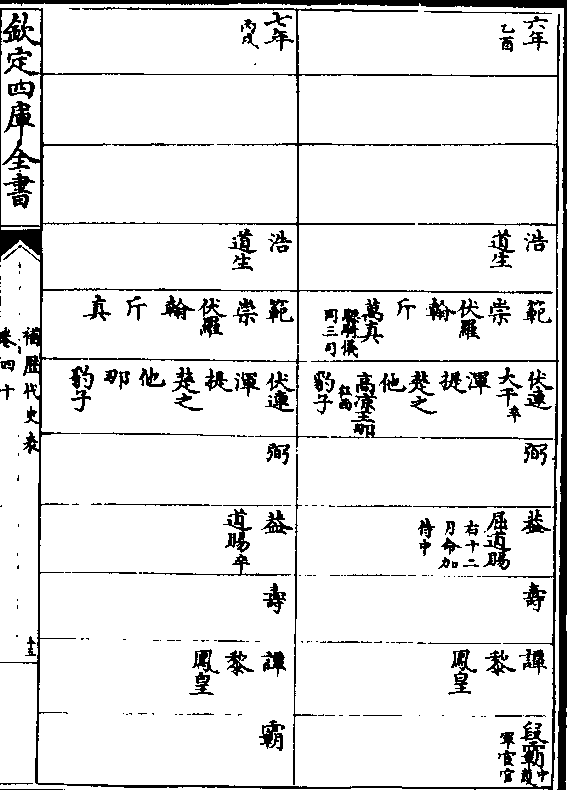 六年
乙酉
浩
道生
範
崇
伏羅
翰
斤
萬真
驃騎儀
同三司
伏連
大平卒
渾
提
楚之
他
高涼王那
豹子
弼
益
屈道賜
右十二
月命加
侍中
壽
譚
黎
鳳皇
段霸
七年
丙戌
浩
道生
範
崇
伏羅
翰
斤
真
伏連
渾
提
楚之
他
那
豹子
弼
益
道賜卒
壽
譚
黎
鳳皇
霸
欽定四庫全書
補歷代史表
卷四十